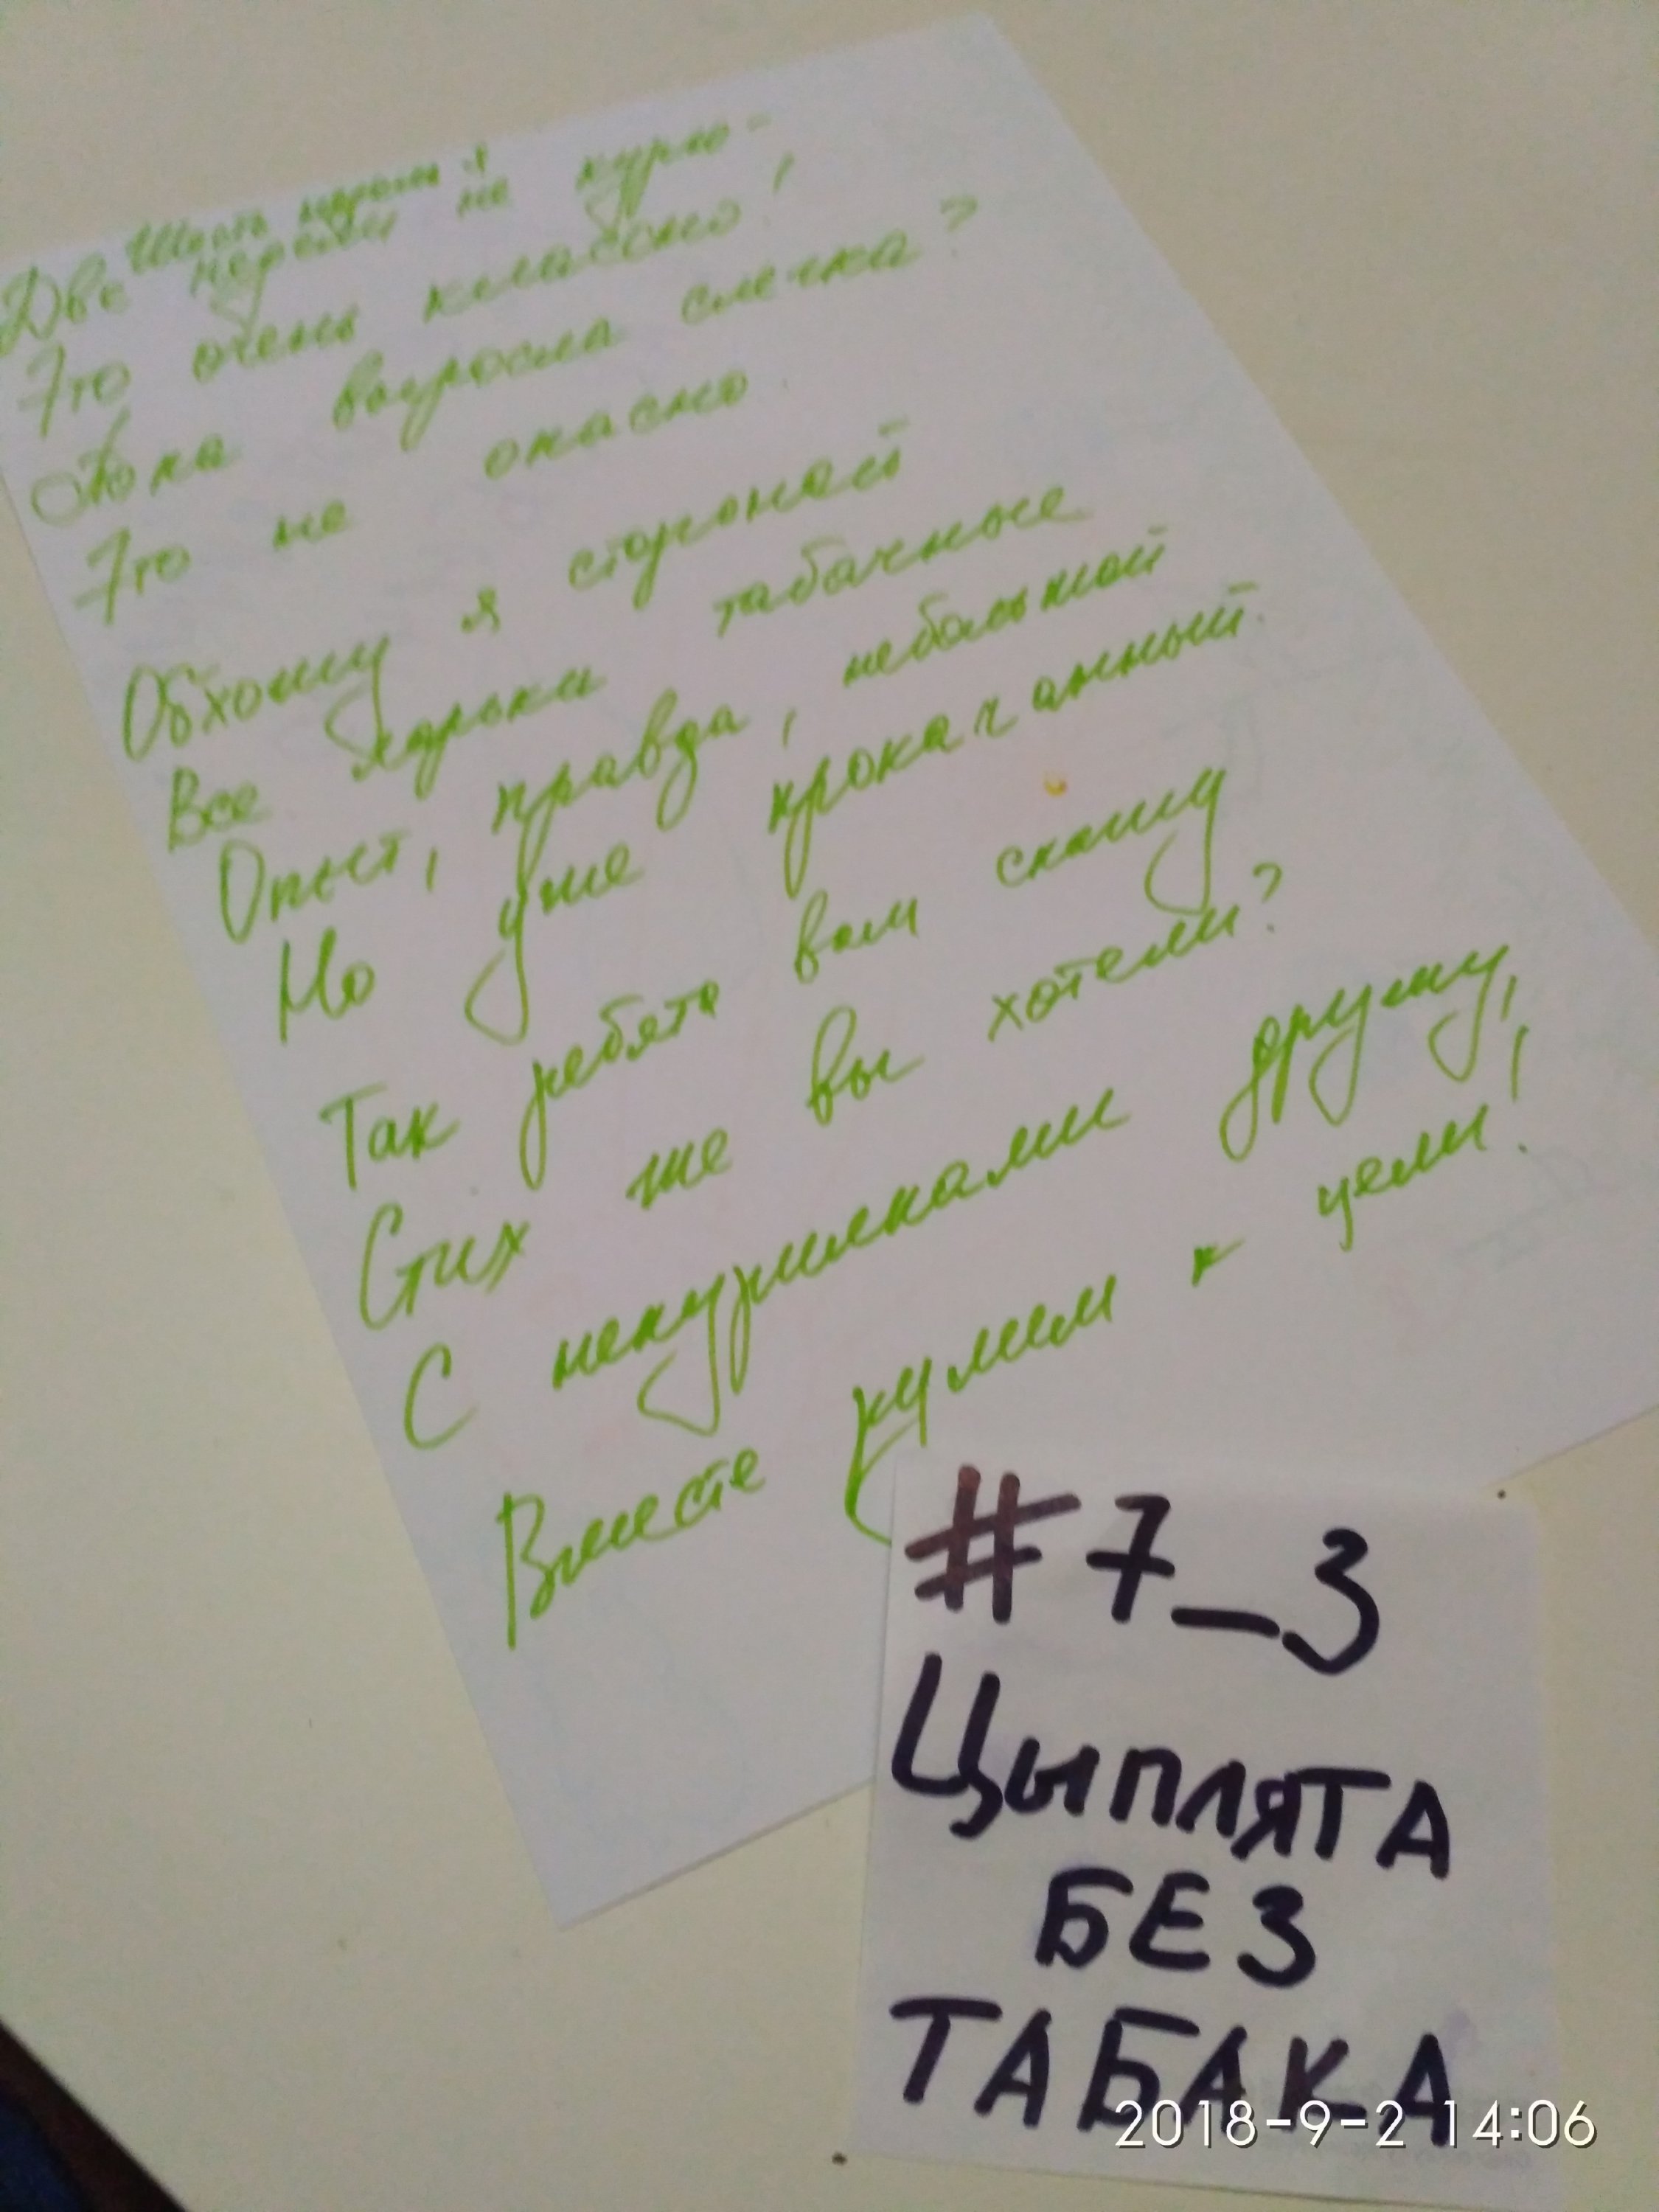 Шесть недель я
Две недели не курю -
Это очень классно!
Попа выросла слегка?
Это не опасно.
Обхожу я стороной
Все ларьки табачные
Опыт, правда, небольшой
Но уже прокачанный.
Так ребята вам скажу
Стих же вы хотели?
С некурилками дружу,
Вместе рулим к цели!
#7_3
ЦЫПЛЯТА
БЕЗ
ТАБАКА
2018-9-2 14:06